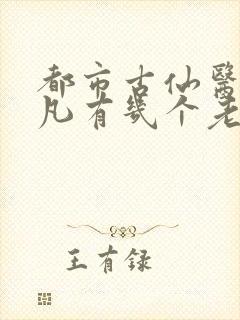 都市古仙醫
凡有幾个老
王有録